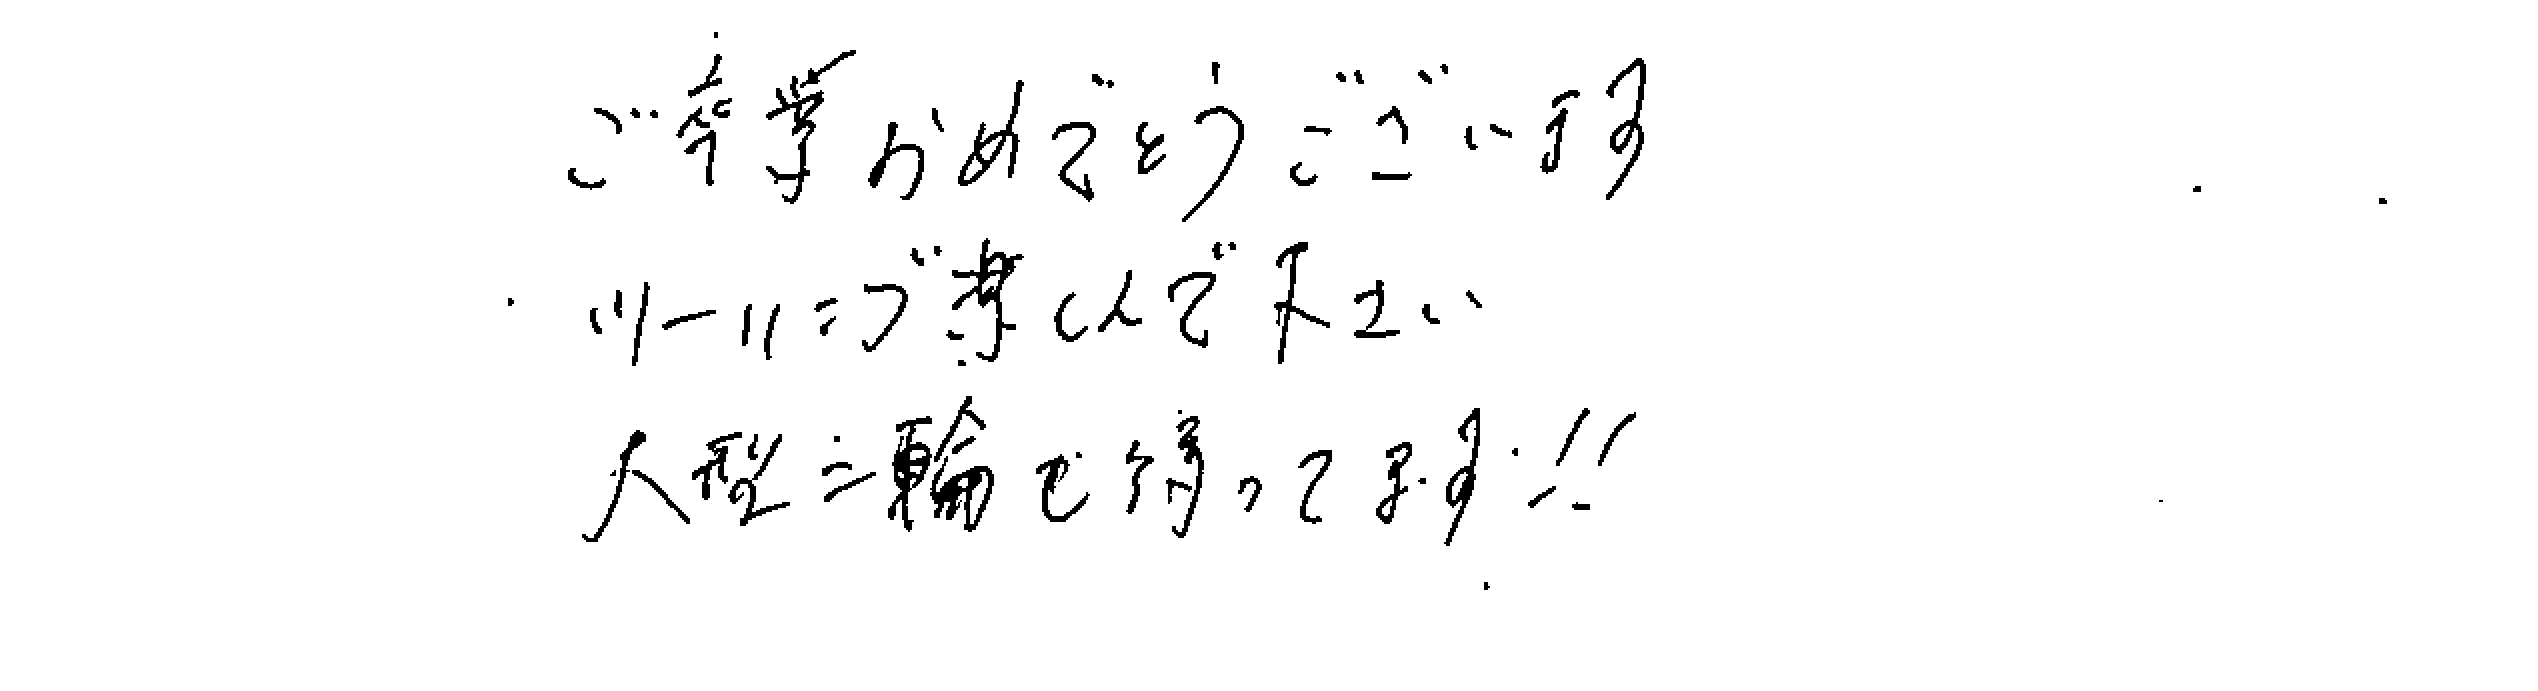 ご卒業おめでとうございます
ツーリング楽しんで下さい
大型二輪で待ってます!!